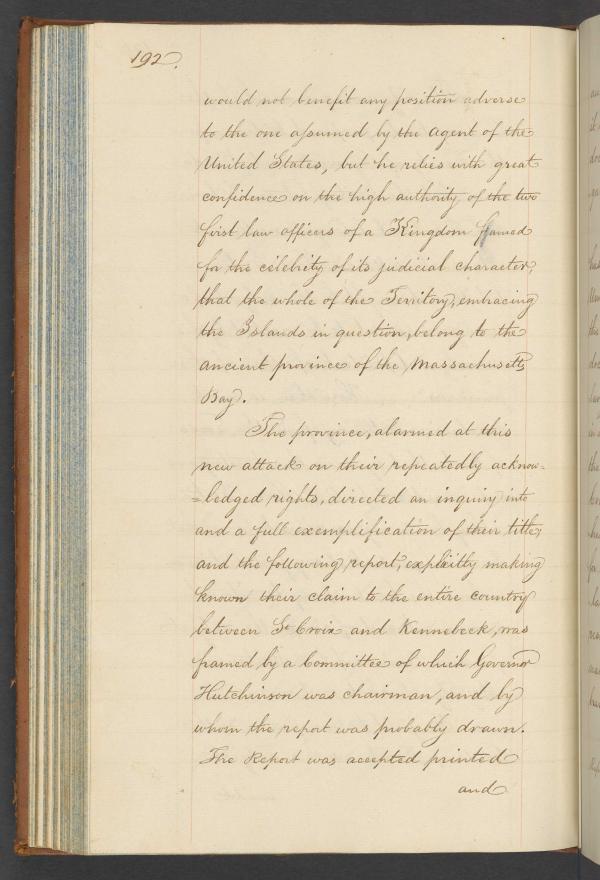 192.
would not benefit any position adverse
to the one assumed by the agent of the
United States, but he relies with great
confidence on the high authority of the two
first law officers of a Kingdom famed
for the celebrity of its judicial character,
that the whole of the Territory, embracing
the Islands in question, belong to the
ancient province of the Massachusetts
Bay.
The province, alarmed at this
new attack on their repeatedly acknow=
=ledged rights, directed an inquiry into
and a full exemplification of their title,
and the following report, explicitly making
known their claim to the entire country
between St Croix and Kennebeck, was
framed by a Committee of which Governor
Hutchinson was chairman, and by
whom the report was probably drawn.
The Report was accepted printed
and